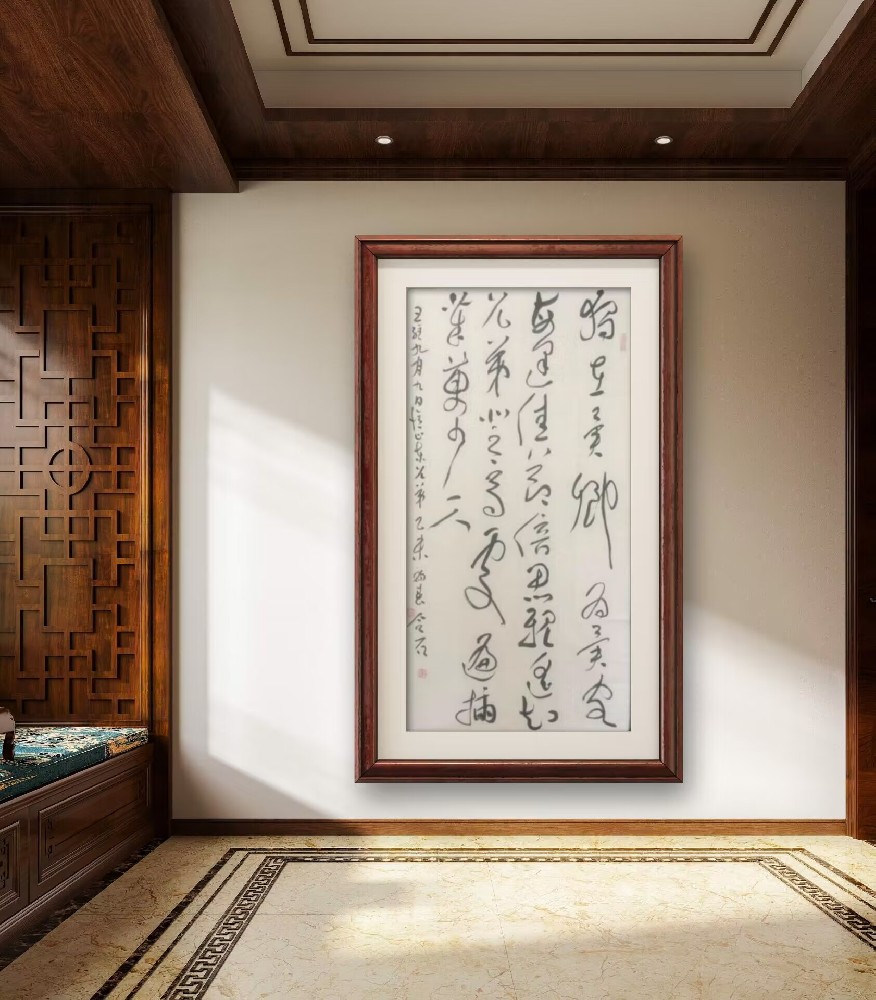 獨在異鄉為異客
每逢佳節倍思親遙知
兄弟登高處遍插
茱萸少一人
王維九月九日憶山東兄弟 乙未